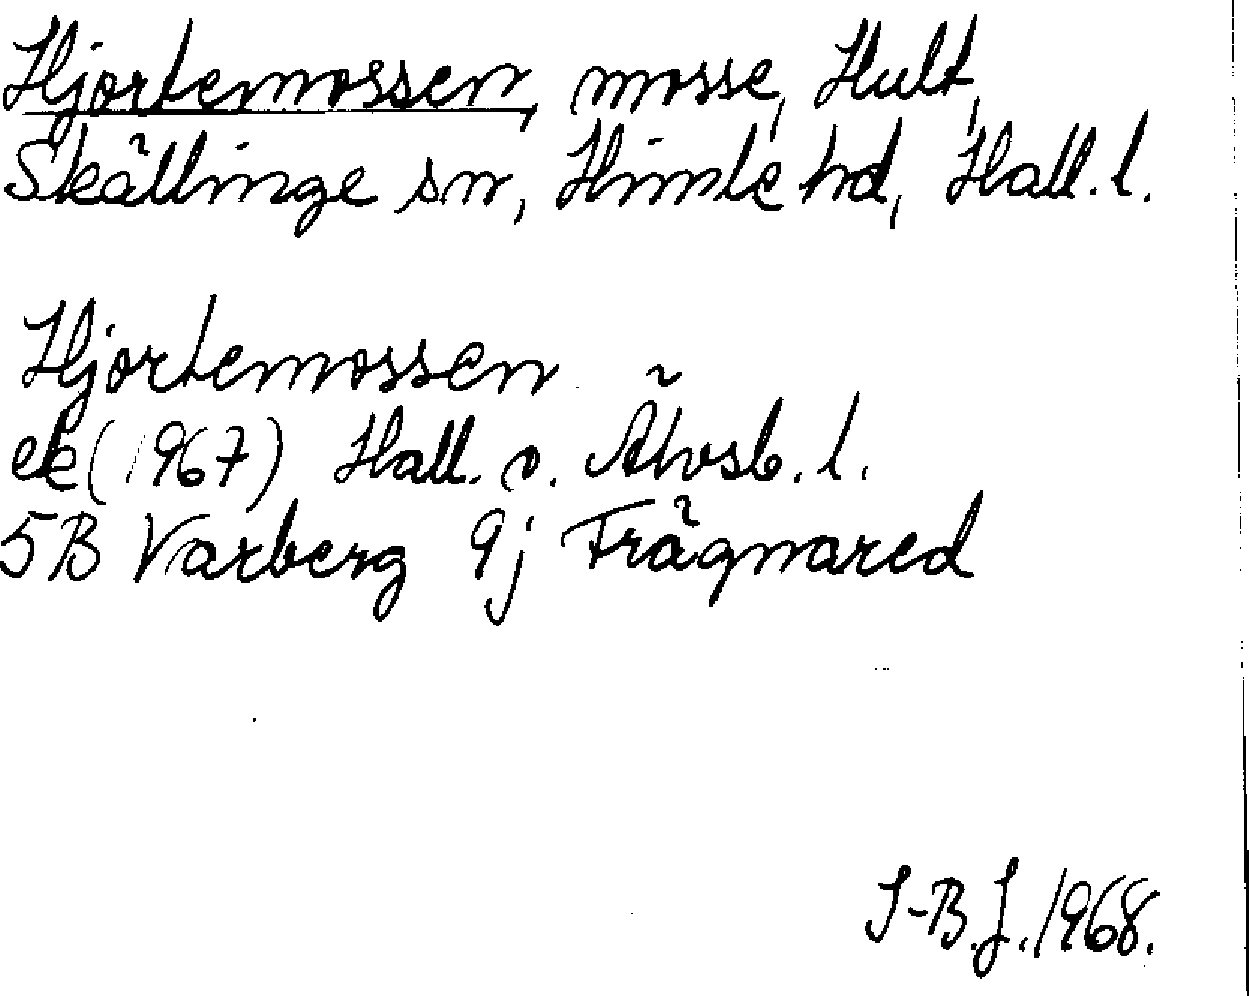 Hjortemossen, mosse, Hult,
Skällinge sn, Himle hd, Hall. l.
Hjortemossen
ek (1967) Hall. o. Älvsb. l.
5B Varberg 9j Frägnared
I-B.J. 1968.